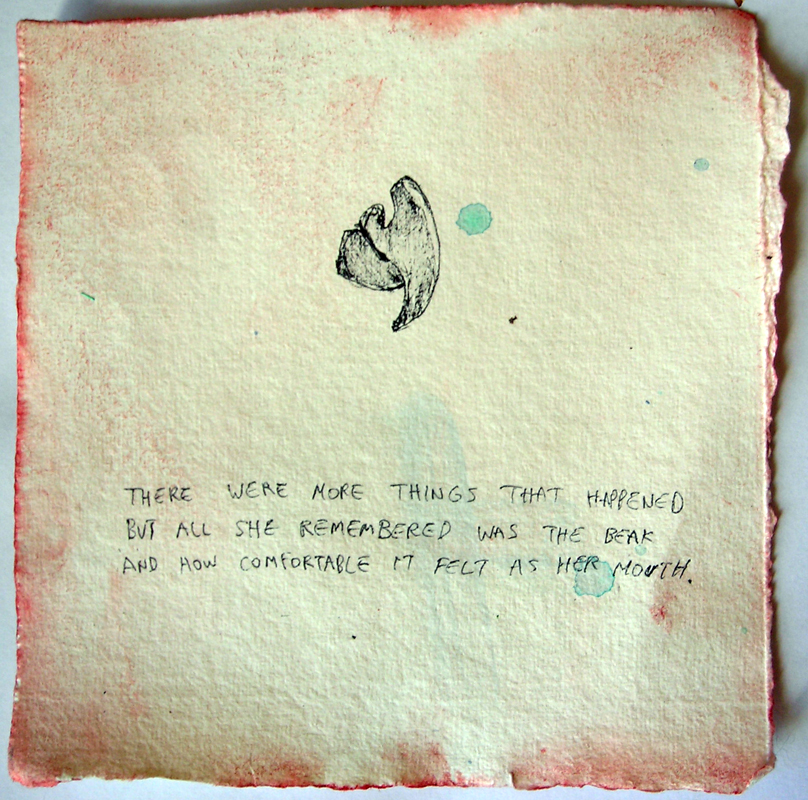 THERE WERE MORE THINGS THAT HAPPENED
BUT ALL SHE REMEMBERED WAS THE BEAK
AND HOW COMFORTABLE IT FELT AS HER MOUTH.